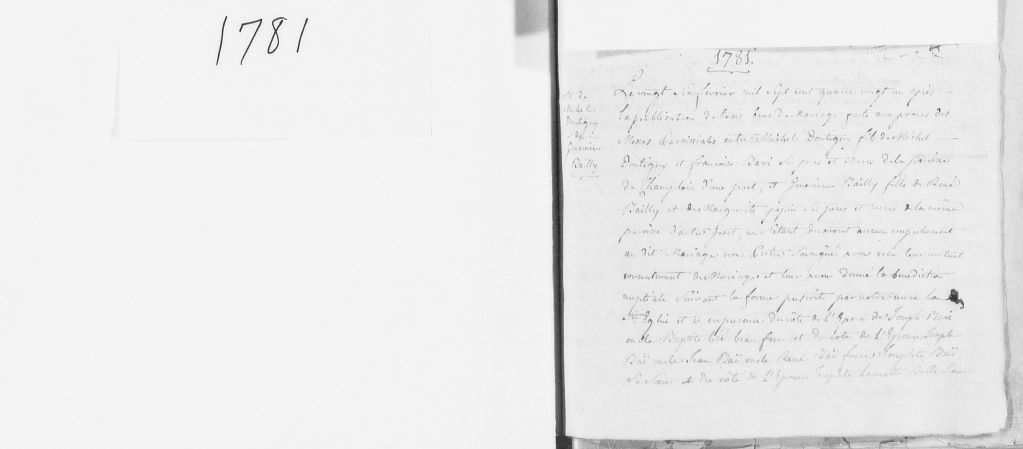 1781
1781.
M. de
Michel
Doutigny
&
Genevieve
Bailly
Le vingt Six fevrier mil Sept cent quatre vingt un après
la publication de trois bans de Mariage faite aux prones des
Messes Paroissiales entre Michel Doutigny fils de Michel
Doutigny et francoise Bari Ses peres et meres de la paroisse
de d'une part, et Genevieve Bailly fille de René
Bailly et de Marguerite pepin Ses peres et meres de la même
paroisse d'autre part, ne s'étant decouvert aucun empechement
au dit Mariage nous Prêtre Soussigné avons reçu leur mutuel
consentement de Mariage et leur avons donné la benediction
nuptiale Suivant la forme prescrite par notre mere La
Ste Eglise et ce en presence du côté de L'Epoux de Joseph
oncle Baptiste beau frere et du côté de L'Epouse Joseph
Baï oncle Jean Baï oncle René Baï frere Josephte Baï
Sa Sœur et du côté de L'Epouse Josephte Lamotte Belle Sœur